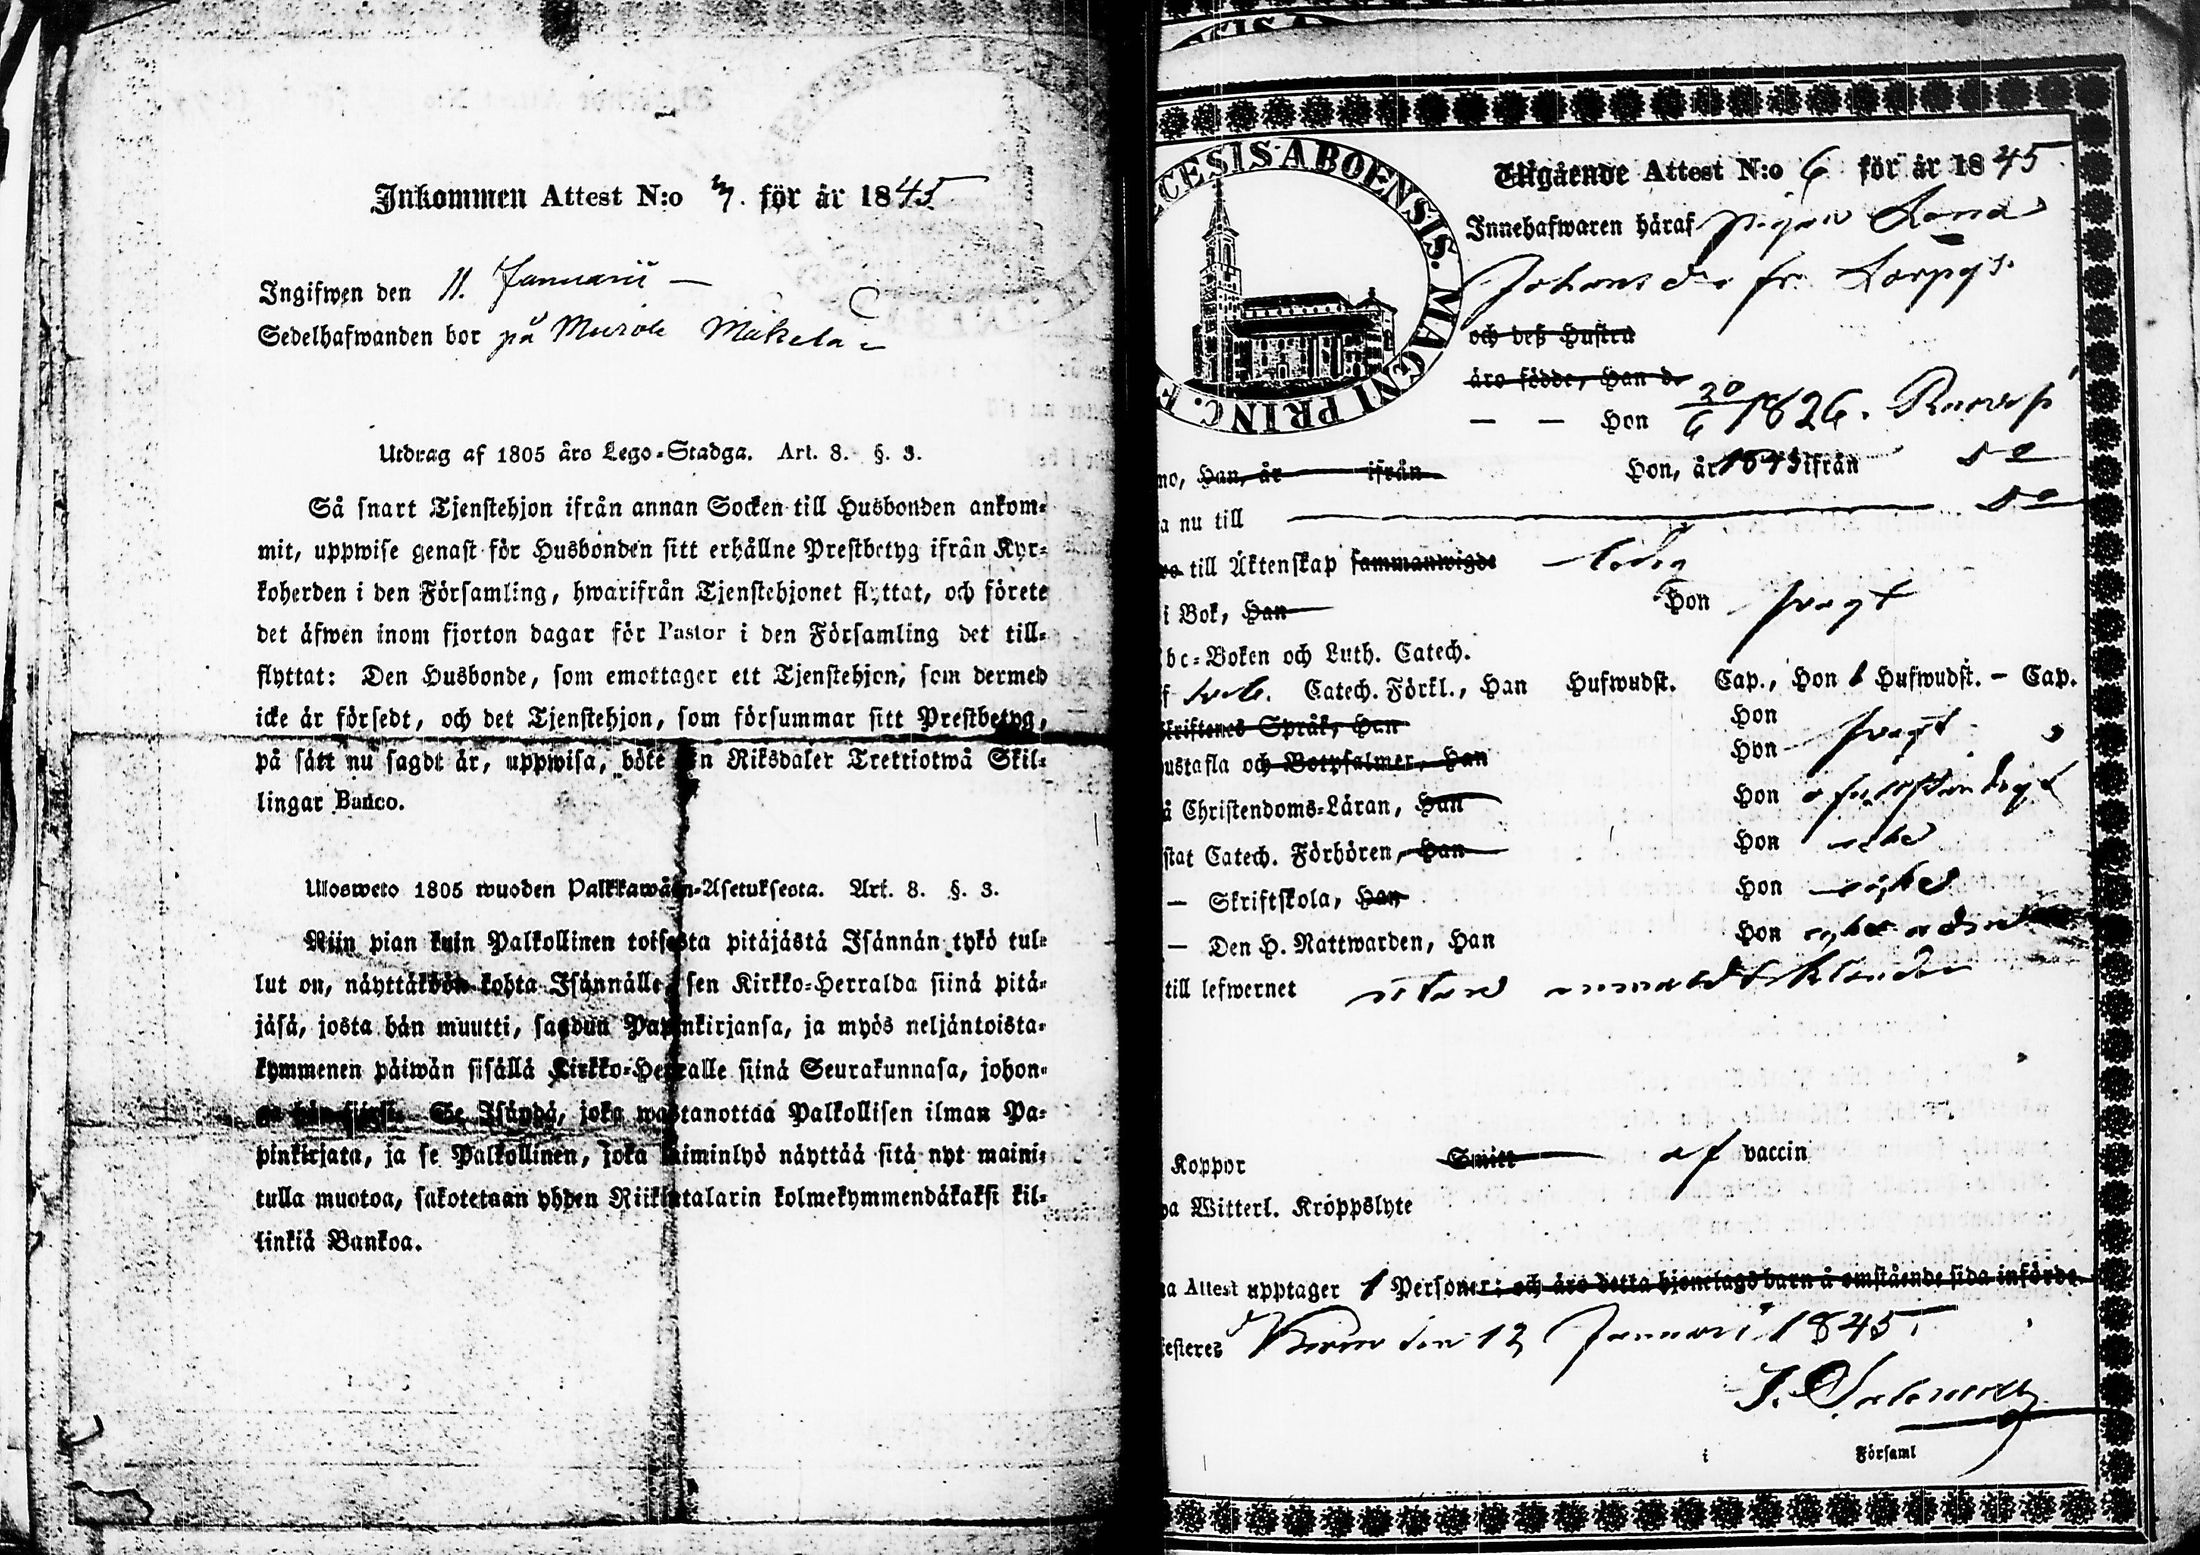 Inkommen Attest N:o 7. för år 1845
Ingifwen den 11. Januarii —
Sedelhafwanden bor på Murole Mäkelä
Utdrag af 1805 års Lego-Stadga. Art. 8. §. 3.
Så snart Tjenstehjon ifrån annan Socken till Husbonden ankom-
mit, uppwise genast för Husbonden sitt erhållne Prestbetyg ifrån Kyr-
koherden i den Församling, hwarifrån Tjenstehjonet flyttat, och förete
det äfwen inom fjorton dagar för Pastor i den Församling det till-
flyttat: Den Husbonde, som emottager ett Tjenstehjon, som dermed
icke är försedt, och det Tjenstehjon, som försummar sitt Prestbetyg,
på sätt nu sagdt är, uppwisa, böte en Riksdaler Trettiotwå Skil-
lingar Banco.
Ulosweto 1805 wuoden Palkkawäen-Asetuksesta. Art. 8. §. 3.
Niin pian kuin Palkollinen toisesta pitäjästä Isännän tykö tul-
lut on, näyttäköön kohta Isännälle sen Kirkko-Herralda siinä pitä-
jäsä, josta hän muutti, saadun Papinkirjansa, ja myös neljäntoista-
kymmenen päiwän sisällä Kirkko-Herralle siinä Seurakunnasa, johon-
Se Isändä, joka wastanottaa Palkollisen ilman Pa-
pinkirjata, ja se Palkollinen, joka laiminlyö näyttää sitä nyt maini-
tulla muotoa, sakotetaan yhden Riikintalarin kolmekymmendäkaksi kil-
linkiä Bankoa.
CESIS ABOENSIS. MAGNI PRINC. F
Utgående Attest N:o 6 för år 1845
Innehafwaren häraf pigan Lovisa
Johansdr fr.
och deß Hustru
äro födde, Han d.
— — Hon 20/6 1826. Ruovesi
no, Han, år ifrån Hon, år 1843 ifrån do
a nu till do
ro till Äktenskap sammanwigde ledig
i Bok, Han Hon svagt
bc-Boken och Luth. Catech.
f Catech. Förkl., Han Hufwudst. Cap., Hon 1 Hufwudst. — Cap.
kriftenes Språk, Han Hon
ustafla och Botpsalmer, Han Hon svagt
å Christendoms-Läran, Han Hon ofullständigt
stat Catech. Förhören, Han Hon
— Skriftskola, Han Hon
— Den H. Nattwarden, Han Hon
till lefwernet utan
Koppor Smitt af vaccin
pa Witterl. Kroppslyte
na Attest upptager 1 Personer; och äro detta hjonelags barn å omstående sida införde.
testeres den 12 Januari 1845.
i Församl